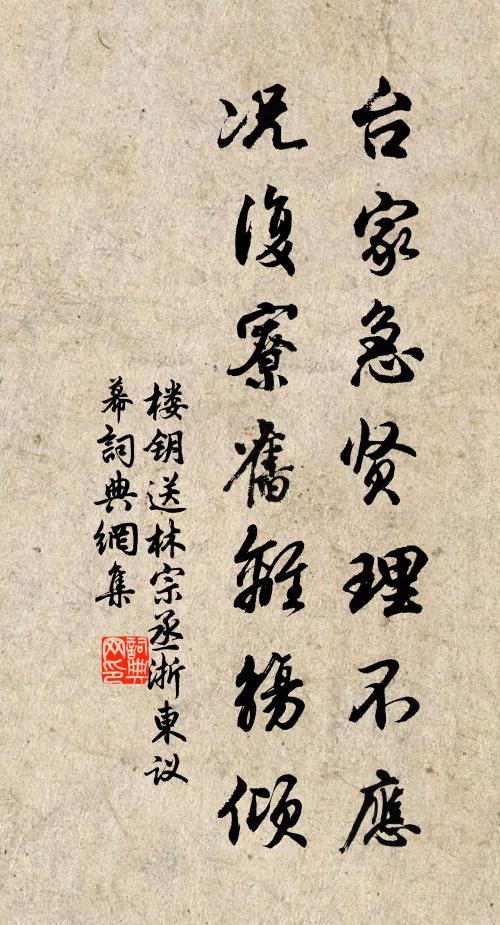 台家急贤理不應
况復寮舊離觴傾
楼钥送林宗丞浙東议
幕詞典網集
詞典
网印